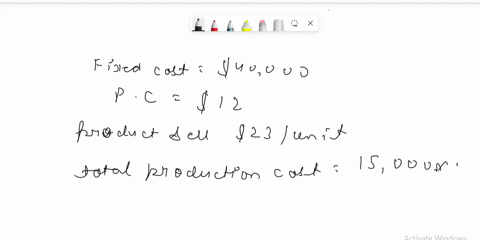 Fixed cost = $40,000
P.C = $12
product sell $23/unit
total production cost = 15,000
Activate Windows